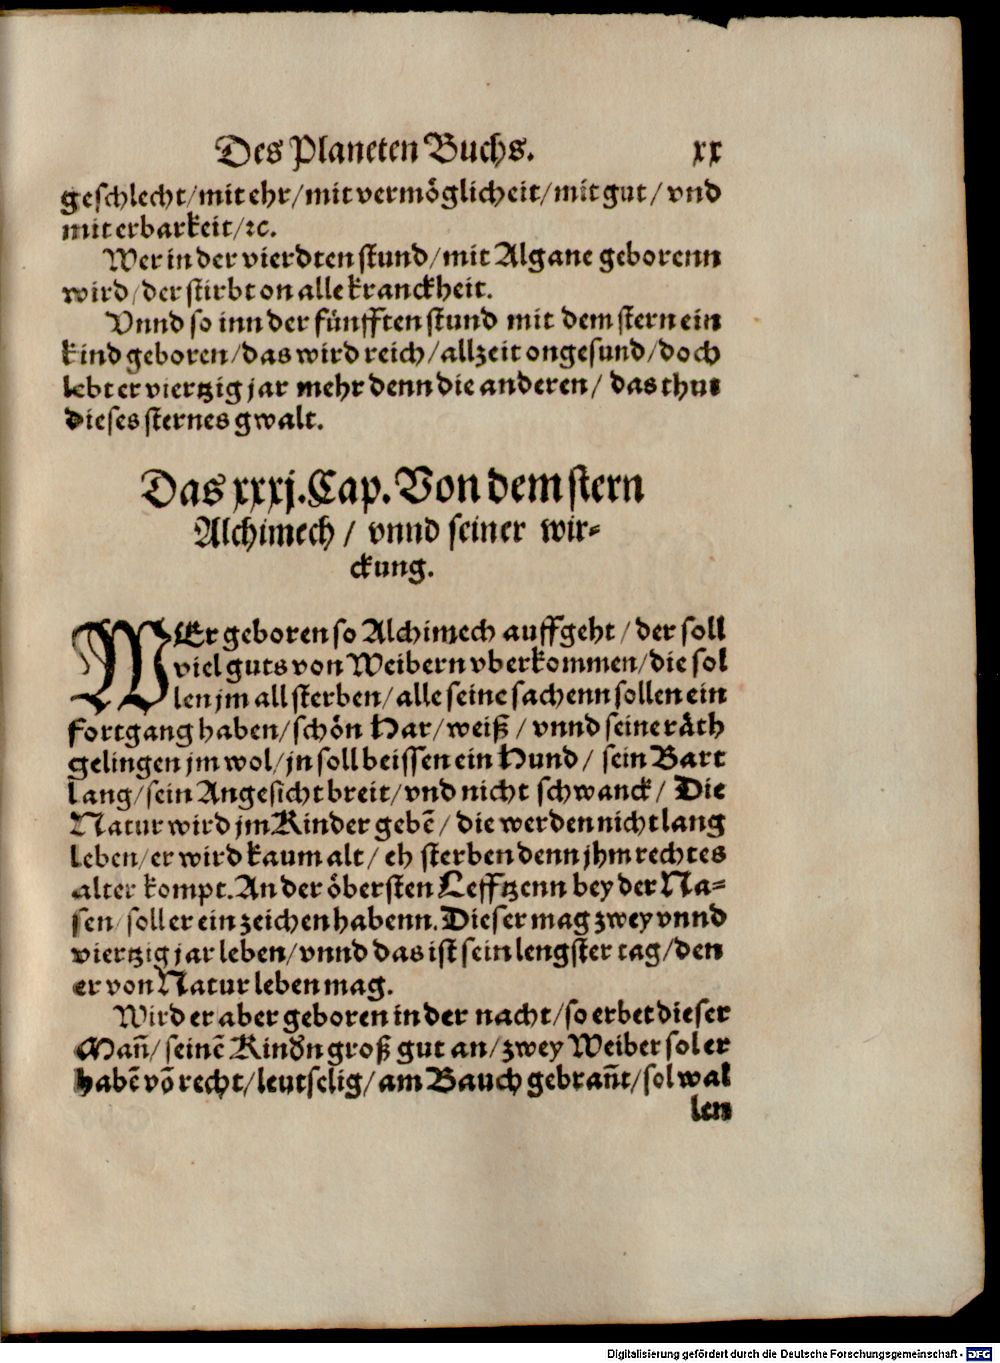 Des Planeten Buchs. xx
geschlecht/mit ehr/mit vermöglicheit/mit gut/ vnd
mit erbarkeit/ꝛc.
Wer in der vierdten stund/mit Algane geborenn
wird/der stirbt on alle kranckheit.
Vnnd so inn der fünfften stund mit dem stern ein
kind geboren/das wird reich/allzeit ongesund/doch
lebt er viertzig jar mehr denn die anderen/ das thut
dieses sternes gwalt.
Das xxxj. Cap. Von dem stern
Alchimech / vnnd seiner wir-
ckung.
WEr geboren so Alchimech auffgeht/der soll
viel guts von Weibern vberkommen/die sol
len jm all sterben/alle seine sachenn sollen ein
fortgang haben/schön Har/weiß / vnnd seine räth
gelingen jm wol/jn soll beissen ein Hund/ sein Bart
lang/sein Angesicht breit/vnd nicht schwanck/ Die
Natur wird jm Kinder gebē/ die werden nicht lang
leben/er wird kaum alt/ eh sterben denn jhm rechtes
alter kompt. An der öbersten Lefftzenn bey der Na-
sen/soll er ein zeichen habenn. Dieser mag zwey vnnd
viertzig jar leben/vnnd das ist sein lengster tag/den
er von Natur leben mag.
Wird er aber geboren in der nacht/so erbet dieser
Mañ/seinē Kindn groß gut an/zwey Weiber sol er
habē vō recht/leutselig/am Bauch gebrañt/sol wal
len
Digitalisierung gefördert durch die Deutsche Forschungsgemeinschaft - DFG